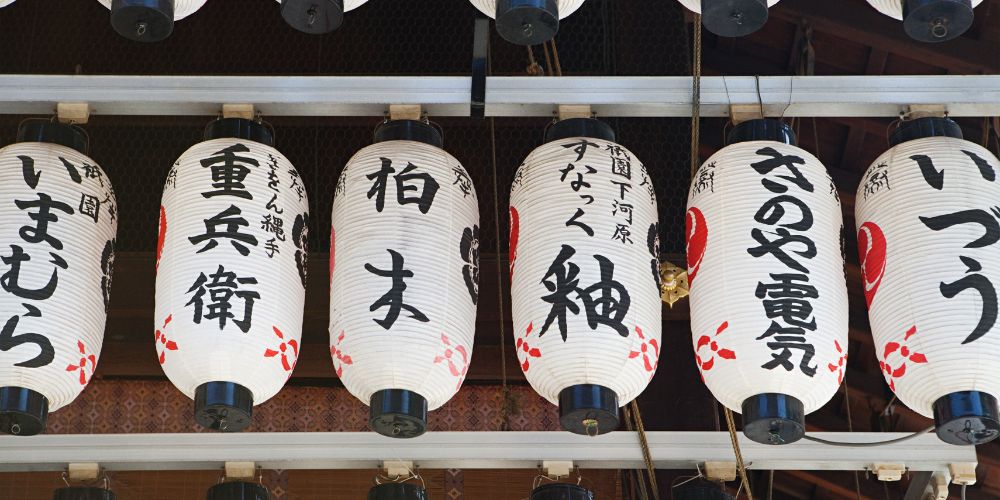 祇園
いまむら
なわ縄手
重兵衛
柏木
祇園下河原
すなっく
釉
さのや電気
祇園
いづう